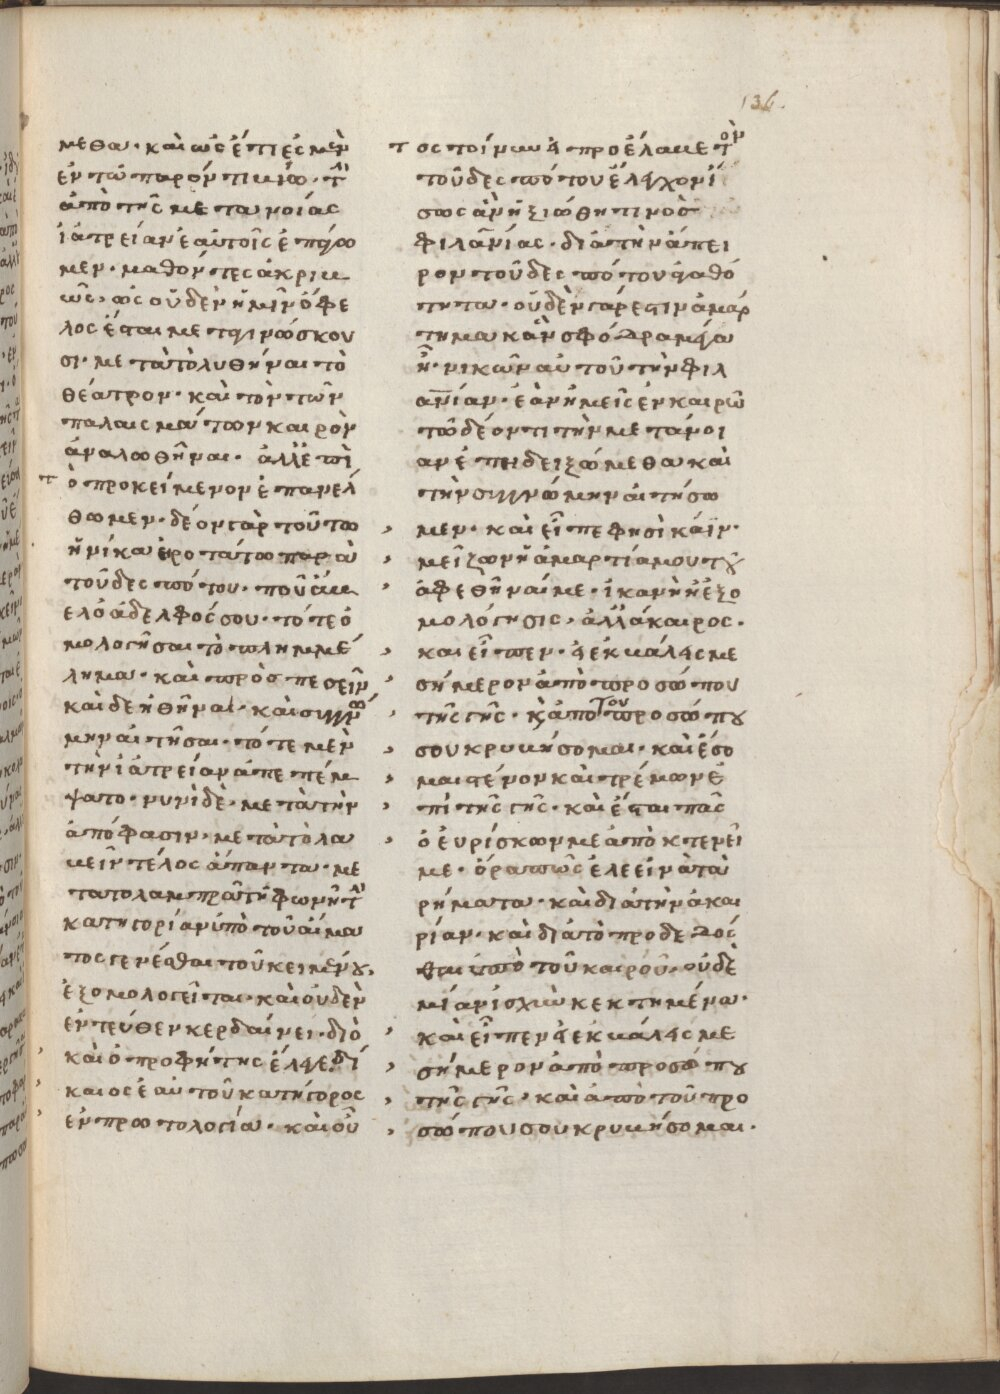 136.
μεθα· καὶ ὡς ἔτι ἐσμὲν
ἐν τῶ παρόντι βίω· τὴν
ἀπὸ τῆς μετανοίας
ἰατρείαν ἑαυτοῖς ἐπάγω
μεν· μαθόντες ἀκριβ
ῶς, ὡς οὐδὲν ἡμῖν ὄφε
λος ἔσται μεταγινώσκου
σι· μετὰ τὸ λυθῆναι τὸ
θέατρον· καὶ τὸν τῶν
παλαισμάτων καιρὸν
ἀναλωθῆναι· ἀλλ' ἐπὶ
τὸ προκείμενον ἐπανέλ
θωμεν· δέον γὰρ τοῦτω
ἡνίκα ἐροτάτω παρ αὐ
τοῦ δεσπότου· ποῦ ἄβ
ελ ὁ ἀδελφός σου· τότε ὁ
μολογῆσαι τὸ πλημμέ
λημα· καὶ προσπεσεῖν
καὶ δεηθῆναι· καὶ συγγνώ
μην αἰτῆσαι· τότε μὲν
τὴν ἰατρείαν ἀπεπέμ
ψατο· νυνὶ δὲ· μετὰ τὴν
ἀπόφασιν· μετὰ τὸ λα
βεῖν τέλος ἅπαντα· με
τα το λαμπρᾶ τῆ φωνῆ τὴν
κατηγορίαν ὑπὸ τοῦ αἵμα
τος γενέσθαι τοῦ κειμένου,
ἐξομολογεῖται· καὶ οὐδὲν
ἐντεύθεν κερδαίνει· διὸ
καὶ ὁ προφήτης ἔλεγε, δί
καιος ἑαυτοῦ κατήγορος
ἐν πρωτολογία· καὶ οὗ
τος τοίνυν εἰ προέλαβε τὸν
τοῦ δεσπότου ἔλεγχον ἴ
σως ἂν ἠξιώθη τινὸς
φιλανίας· διὰ τὴν ἄπει
ρον τοῦ δεσπότου ἀγαθό
τητα· οὐδὲν γάρ ἐστιν ἁμάρ
τημα κἂν σφόδρα μέγα
ἦ· νικῶν αὐτοῦ τὴν φιλ
ανίαν· ἐὰν ἡμεῖς ἐν καιρῶ
τῶ δέοντι τὴν μετάνοι
αν ἐπιδειξώμεθα καὶ
τὴν συγγνώμην αἰτήσω
μεν· καὶ εἶπε φησὶ κάϊν·
μείζων ἡ ἁμαρτία μου τοῦ
ἀφεθῆναί με· ἱκανὴ ἡ ἐξο
μολόγησις, ἀλλ' ἄκαιρος·
καὶ εἶπεν· εἰ ἐκβάλεις με
σήμερον ἀπὸ προσώπου
τῆς γῆς· κ ἀπὸ τοῦ προσώπου
σου κρυβήσομαι· καὶ ἔσο
μαι στένον καὶ τρέμων ἐ
πὶ τῆς γῆς· καὶ ἔσται πᾶς
ὁ εὑρίσκων με ἀποκτενεῖ
με· ὅρα πῶς ἐλεεῖν ὰ τὰ
ρήματα· καὶ διὰ τὴν ἀκαι
ρίαν· καὶ διὰ τὸ προδεδόσ
θαι ὑπὸ τοῦ καιροῦ· οὐδε
μίαν ἰσχὺν κεκτημένα·
καὶ εἶπεν εἰ ἐκβάλεις με
σήμερον ἀπὸ προσώπου
τῆς γῆς· καὶ ἀπὸ τοῦ προ
σώπου σου κρυβήσομαι·